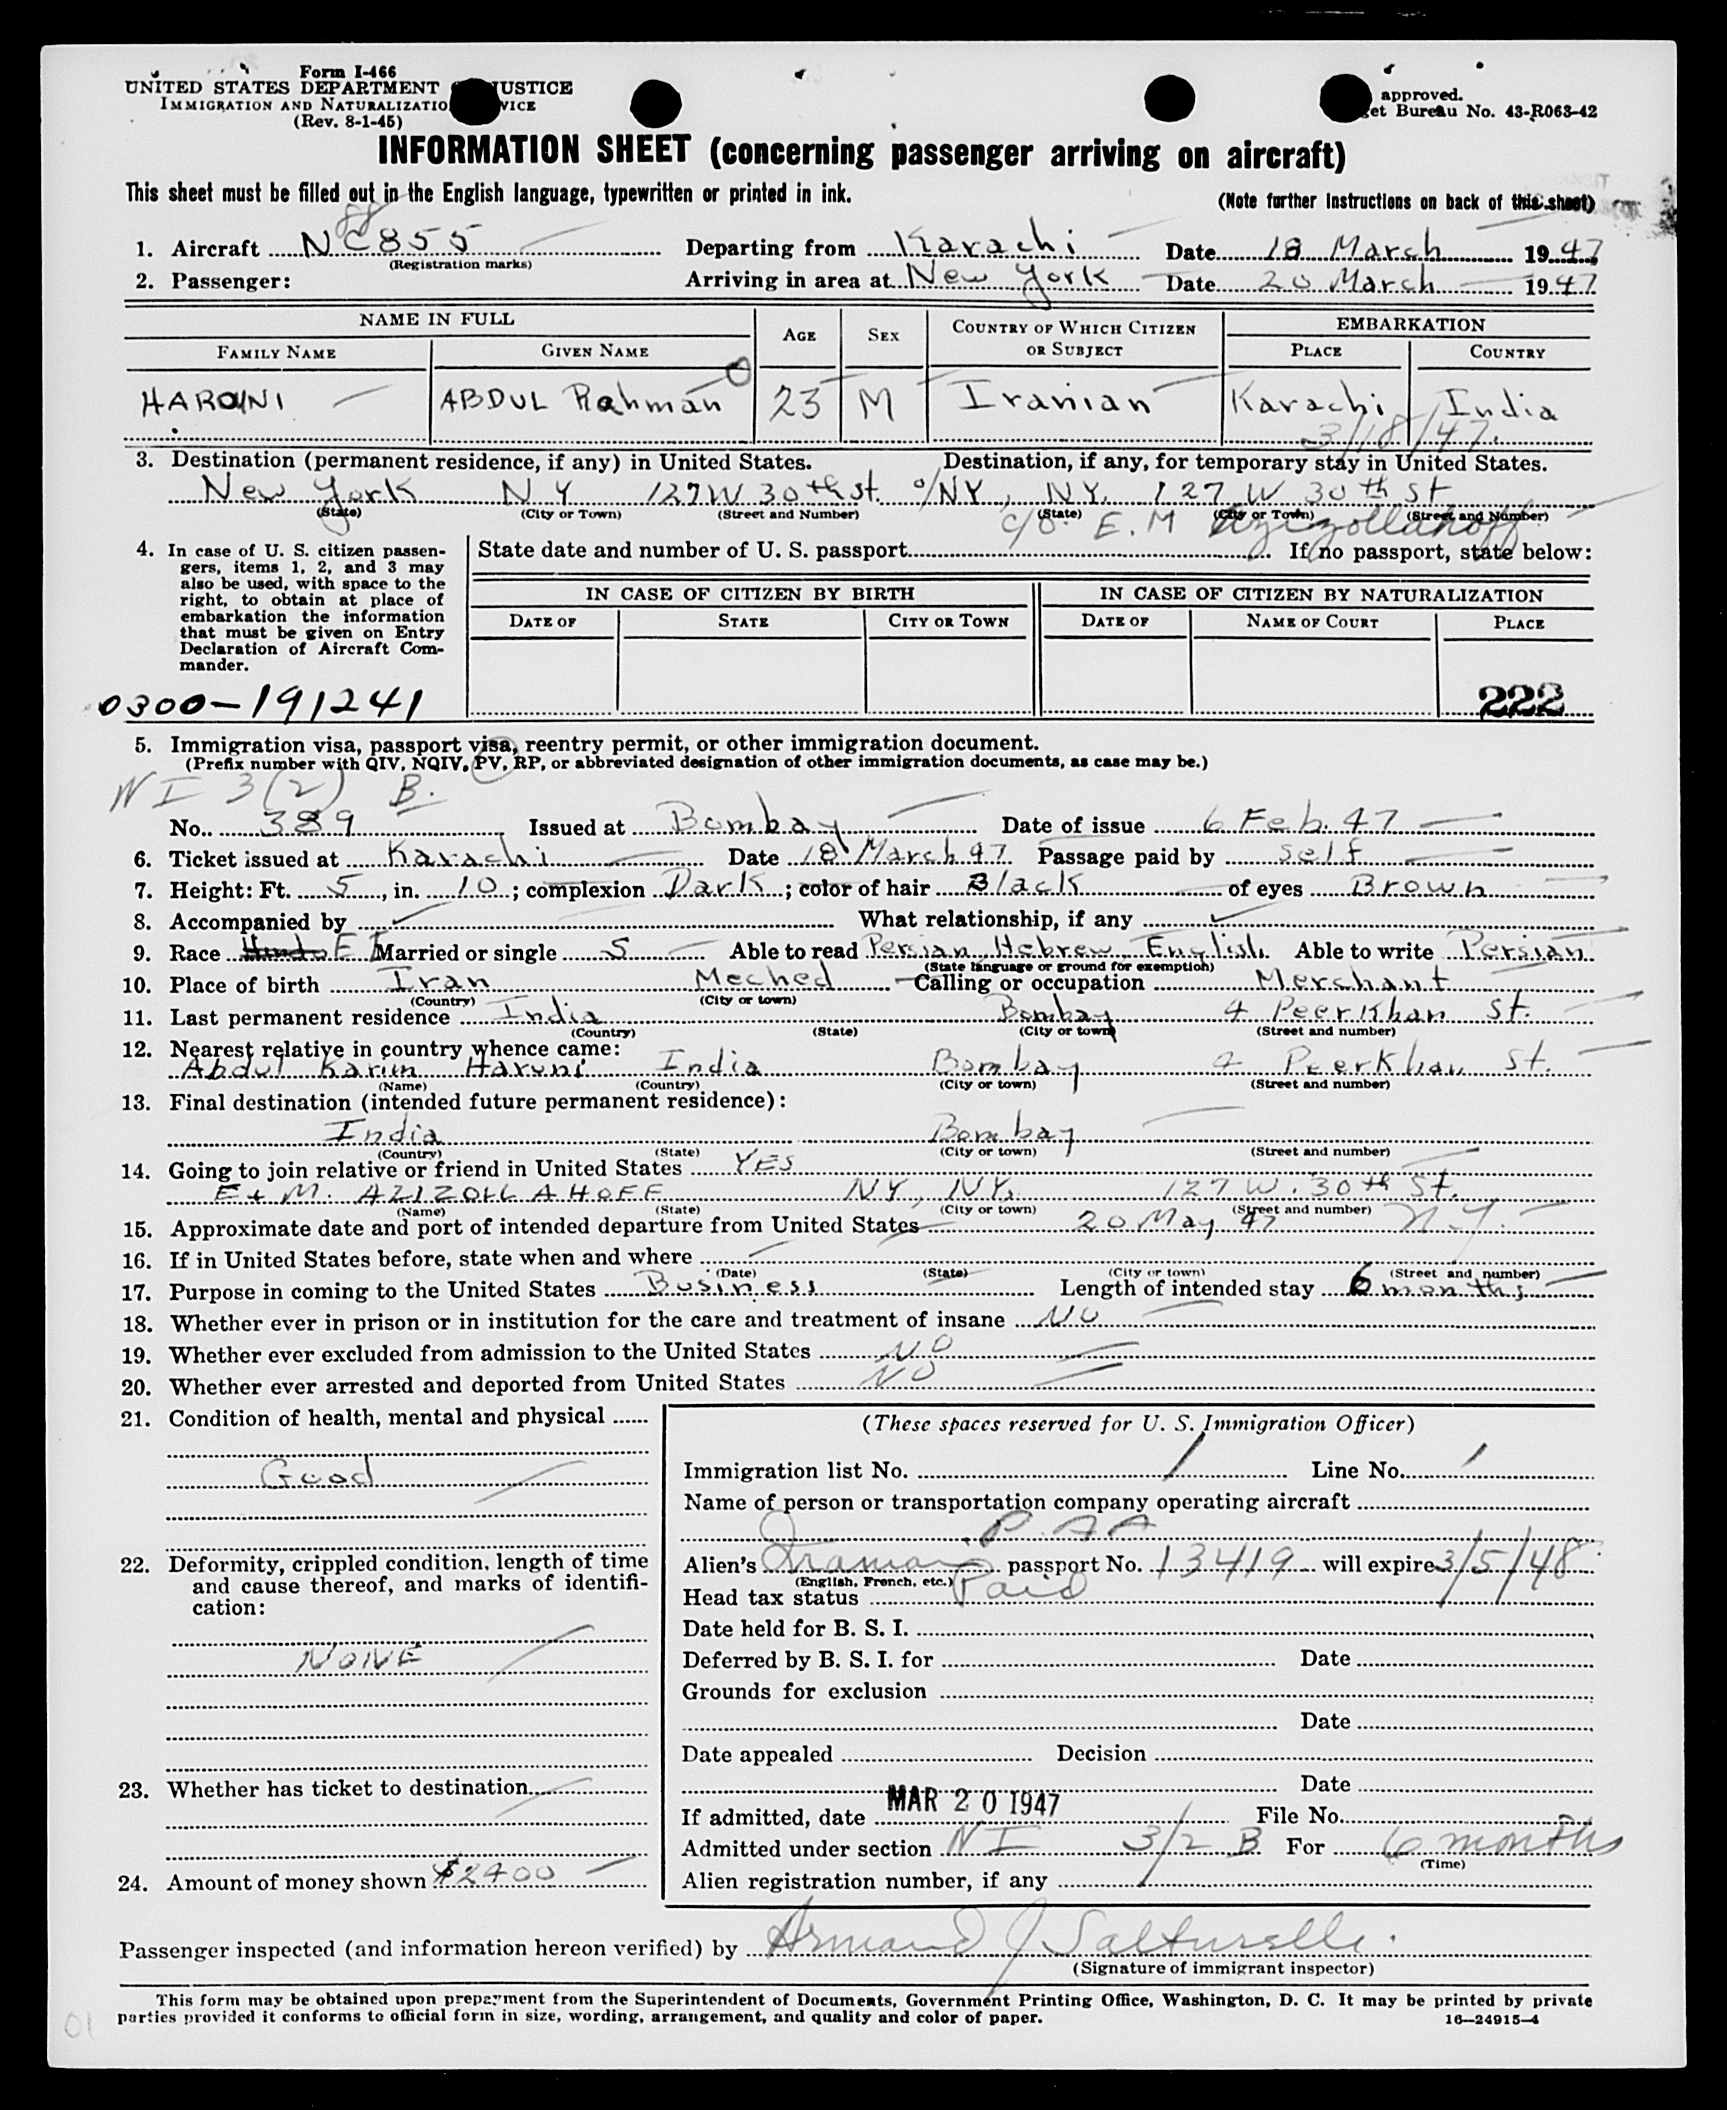 Form I-466
UNITED STATES DEPARTMENT JUSTICE
IMMIGRATION AND NATURALIZATIO VICE
(Rev. 8-1-45)
approved.
et Bureau No. 43-R063-42
INFORMATION SHEET (concerning passenger arriving on aircraft)
This sheet must be filled out in the English language, typewritten or printed in ink.
(Note further instructions on back of this sheet)
88
1. Aircraft NC855 Departing from Karachi Date 18 March 1947
(Registration marks)
2. Passenger: Arriving in area at New York Date 20 March 1947
NAME IN FULL AGE SEX COUNTRY OF WHICH CITIZEN OR SUBJECT EMBARKATION
FAMILY NAME GIVEN NAME PLACE COUNTRY
HARONI ABDUL Rahman 23 M Iranian Karachi India
3/18/47.
3. Destination (permanent residence, if any) in United States. Destination, if any, for temporary stay in United States.
New York N Y 127 W 30th st. % NY, NY. 127 W 30th St
(State) (City or Town) (Street and Number) (State) (City or Town) (Street and Number)
c/o E. M Azizollahoff
4. In case of U. S. citizen passen-
gers, items 1, 2, and 3 may
also be used, with space to the
right, to obtain at place of
embarkation the information
that must be given on Entry
Declaration of Aircraft Com-
mander.
State date and number of U. S. passport If no passport, state below:
IN CASE OF CITIZEN BY BIRTH IN CASE OF CITIZEN BY NATURALIZATION
DATE OF STATE CITY OR TOWN DATE OF NAME OF COURT PLACE
0300-191241
222
5. Immigration visa, passport visa, reentry permit, or other immigration document.
(Prefix number with QIV, NQIV, PV, RP, or abbreviated designation of other immigration documents, as case may be.)
NI 3(2) B.
No. 389 Issued at Bombay Date of issue 6 Feb. 47
6. Ticket issued at Karachi Date 18 March 47 Passage paid by Self
7. Height: Ft. 5, in. 10; complexion Dark; color of hair Black of eyes Brown
8. Accompanied by What relationship, if any
9. Race E I Married or single S Able to read Persian Hebrew English Able to write Persian
(State language or ground for exemption)
10. Place of birth Iran Meched Calling or occupation Merchant
(Country) (City or town)
11. Last permanent residence India Bombay 4 PeerKhan St.
(Country) (State) (City or town) (Street and number)
12. Nearest relative in country whence came:
Abdul Karim Haruni India Bombay 4 PeerKhan St.
(Name) (Country) (City or town) (Street and number)
13. Final destination (intended future permanent residence):
India Bombay
(Country) (State) (City or town) (Street and number)
14. Going to join relative or friend in United States YES
E + M. AZIZOLLAHOFF NY, NY, 127 W. 30th St.
(Name) (State) (City or town) (Street and number)
15. Approximate date and port of intended departure from United States 20 May 47 N.Y.
16. If in United States before, state when and where
(Date) (State) (City or town) (Street and number)
17. Purpose in coming to the United States Business Length of intended stay 6 months
18. Whether ever in prison or in institution for the care and treatment of insane NO
19. Whether ever excluded from admission to the United States NO
20. Whether ever arrested and deported from United States NO
21. Condition of health, mental and physical
Good
22. Deformity, crippled condition, length of time
and cause thereof, and marks of identifi-
cation:
NONE
23. Whether has ticket to destination
24. Amount of money shown $2400
(These spaces reserved for U. S. Immigration Officer)
Immigration list No. 1 Line No. 1
Name of person or transportation company operating aircraft
P. A A
Alien's Iranian passport No. 13419 will expire 3/5/48
(English, French, etc.)
Head tax status Paid
Date held for B. S. I.
Deferred by B. S. I. for Date
Grounds for exclusion
Date
Date appealed Decision
Date
If admitted, date MAR 20 1947 File No.
Admitted under section NI 3/2 B For 6 months
(Time)
Alien registration number, if any
Passenger inspected (and information hereon verified) by Armand J
(Signature of immigrant inspector)
This form may be obtained upon prepayment from the Superintendent of Documents, Government Printing Office, Washington, D. C. It may be printed by private
parties provided it conforms to official form in size, wording, arrangement, and quality and color of paper.
16—24915-4